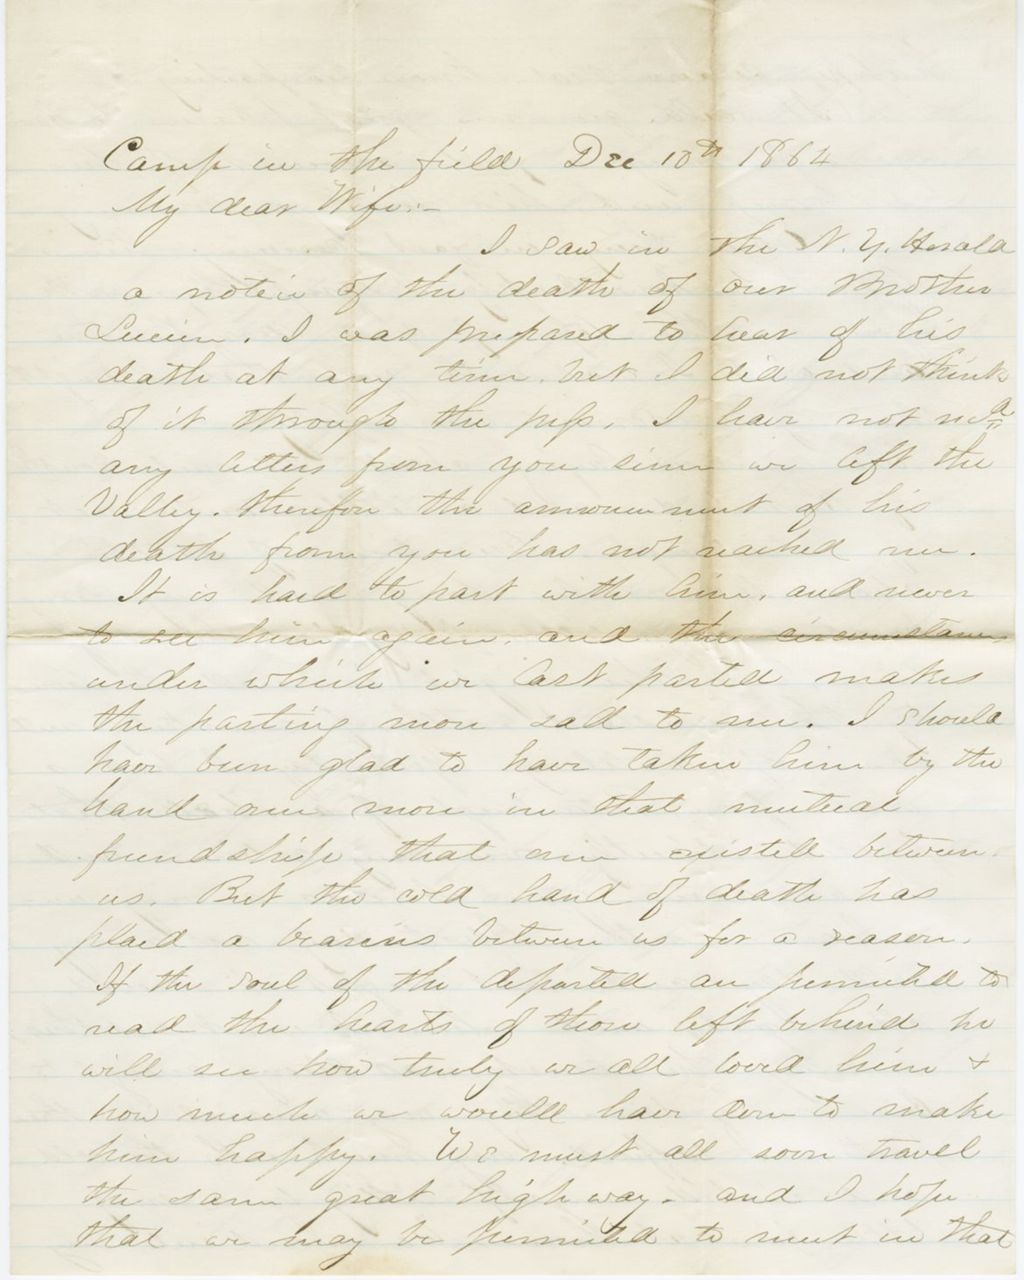 Camp in the field Dec 10th 1864
My dear Wife:-
I saw in the N. Y. Herald
a notice of the death of our Brother
Lucien. I was prepared to hear of his
death at any time. but I did not think
of it through the press. I have not recd
any letters from you since we left the
Valley. therefore the announcement of his
death from you has not reached me.
It is hard to part with him, and never
to see him again. and the circumstances
under which we last parted makes
the parting more sad to me. I should
have been glad to have taken him by the
hand once more in that mutual
friendship that once existed between
us. But the cold hand of death has
placed a between us for a season.
If the soul of the departed are permitted to
read the hearts of those left behind he
will see how truly we all loved him &
how much we would have done to make
him happy. We must all soon travel
the same great high way. and I hope
that we may be permitted to meet in that